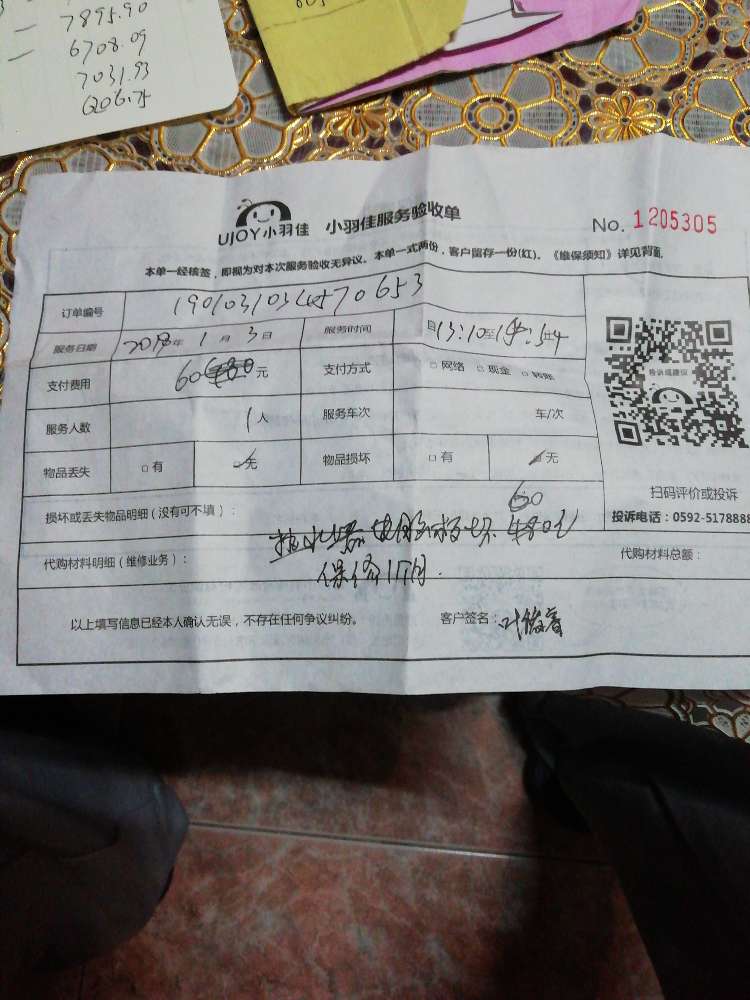 7895.90
6708.09
7031.93
UJOY小羽佳 小羽佳服务验收单
No. 1205305
本单一经核签，即视为对本次服务验收无异议。本单一式两份，客户留存一份(红)。《维保须知》详见背面
订单编号
服务日期 年 1 月 3 日 服务时间 自13:10至
支付费用 60 元 支付方式 □网络 □现金 □转账
服务人数 1人 服务车次 车/次
物品丢失 □有 □无 物品损坏 □有 □无
投诉或建议
扫码评价或投诉
投诉电话：0592-5178888
损坏或丢失物品明细（没有可不填）：
60
代购材料明细（维修业务）： 代购材料总额：
保修1个月.
以上填写信息已经本人确认无误，不存在任何争议纠纷。 客户签名：